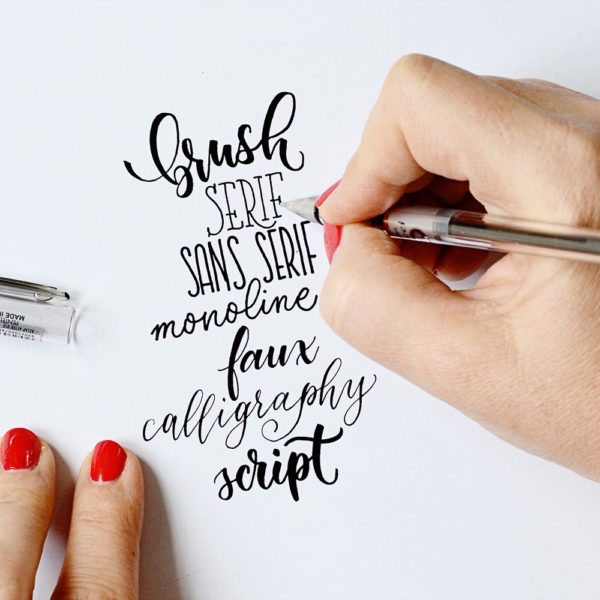 brush
SERIF
SANS SERIF
monoline
faux
calligraphy
script
MADE IN